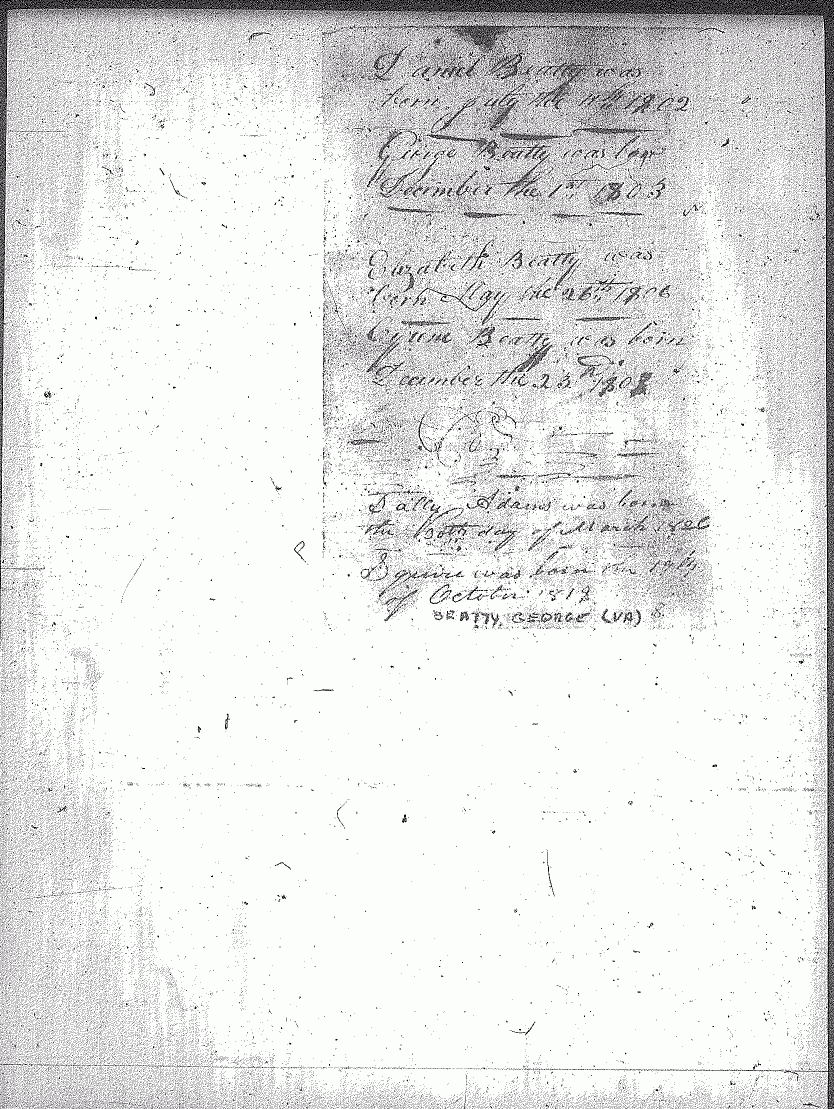 Daniel Beatty was
born July the 11th 1802
George Beatty was bor
December the 1st 1803
Elizabeth Beatty was
born May the 26th 1806
Beatty was born
December the 23 180
Sally Adams was born
the 30th day of March
Squire was born the 19th
of October 1819
BEATTY, GEORGE (VA)